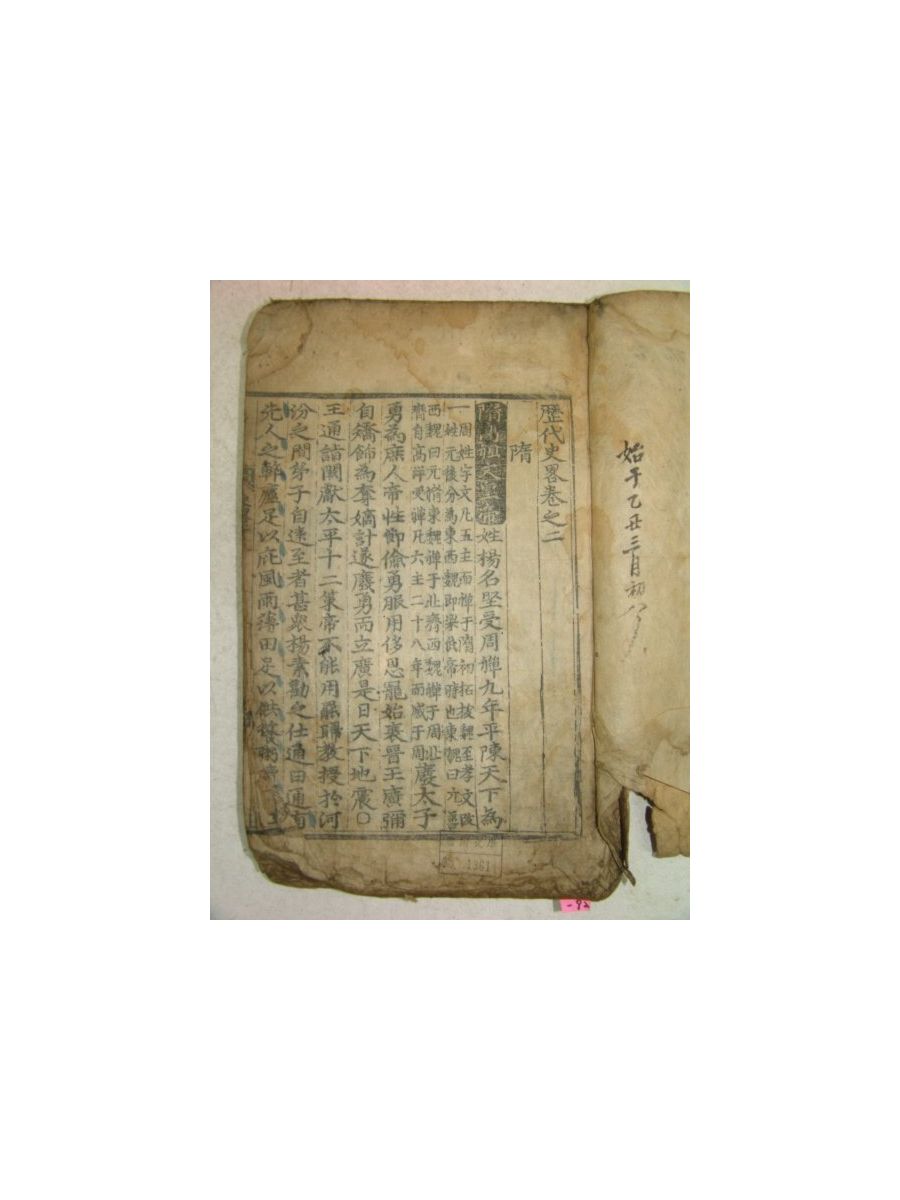 始于乙丑三月初
歷代史畧卷之二
隋
隋高祖文皇帝姓楊名堅受周禪九年平陳天下為
一周姓宇文凡五主而禪于隋初拓拔魏至孝文改
姓元後分為東西魏即梁武帝時也東魏曰元善
西魏曰元脩東魏禪于北齊西魏禪于周北
齊自高洋受禪凡六主二十八年而滅于周廢太子
勇為庶人帝性節儉勇服用侈恩寵始衰晉王廣彌
自矯飾為奪嫡計遂廢勇而立廣是日天下地震〇
王通詣闕獻太平十二策帝不能用罷歸教授於河
汾之間弟子自遠至者甚眾楊素勸之仕通曰通有
先人之弊廬足以庇風雨薄田足以供
1361
-92